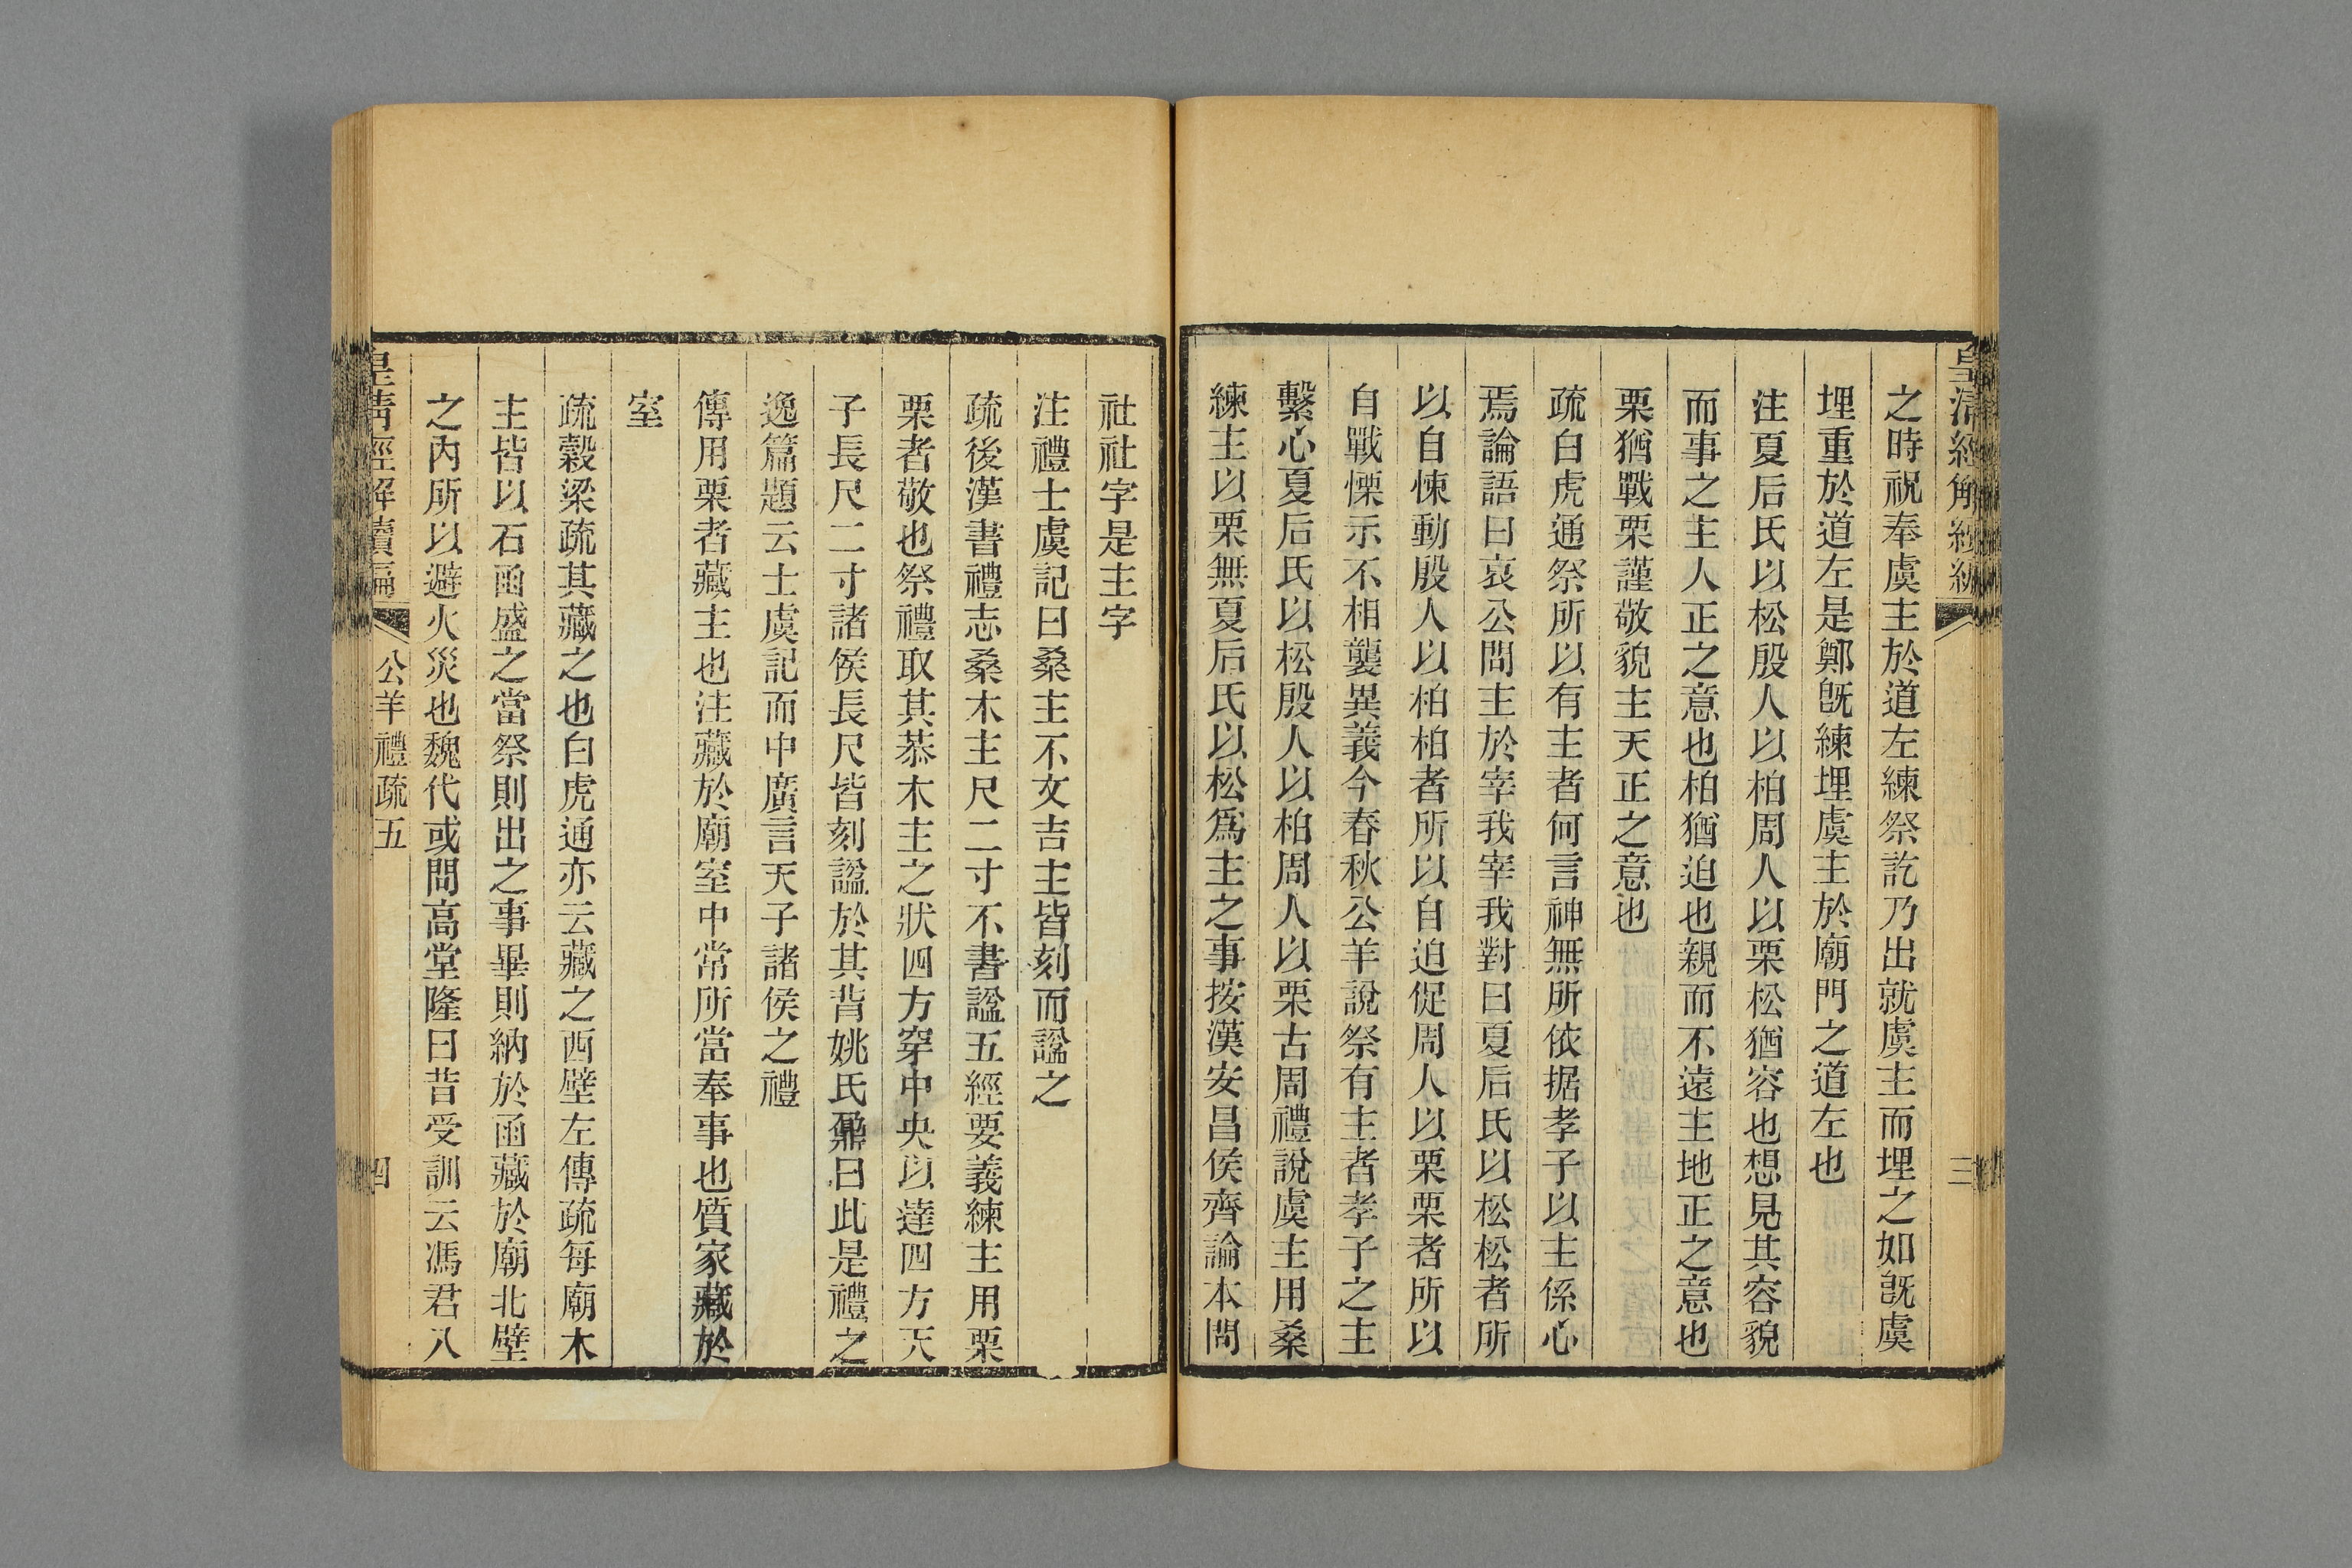 皇清經解續編
三
之時祝奉虞主於道左練祭訖乃出就虞主而埋之如旣虞
埋重於道左是鄭旣練埋虞主於廟門之道左也
注夏后氏以松殷人以柏周人以栗松猶容也想見其容貌
而事之主人正之意也柏猶迫也親而不遠主地正之意也
栗猶戰栗謹敬貌主天正之意也
疏白虎通祭所以有主者何言神無所依据孝子以主係心
焉論語曰哀公問主於宰我宰我對曰夏后氏以松松者所
以自悚動殷人以柏柏者所以自迫促周人以栗栗者所以
自戰慄示不相襲異義今春秋公羊說祭有主者孝子之主
繫心夏后氏以松殷人以柏周人以栗古周禮說虞主用桑
練主以栗無夏后氏以松爲主之事按漢安昌侯齊論本問
社社字是主字
注禮士虞記曰桑主不文吉主皆刻而諡之
疏後漢書禮志桑木主尺二寸不書諡五經要義練主用栗
栗者敬也祭禮取其恭木主之狀四方穿中央以達四方天
子長尺二寸諸侯長尺皆刻諡於其背姚氏鼐曰此是禮之
逸篇題云士虞記而中廣言天子諸侯之禮
傳用栗者藏主也注藏於廟室中常所當奉事也質家藏於
室
疏穀梁疏其藏之也白虎通亦云藏之西壁左傳疏每廟木
主皆以石函盛之當祭則出之事畢則納於函藏於廟北壁
之內所以避火災也魏代或問高堂隆曰昔受訓云馮君八
皇清經解續編
公羊禮疏五
四